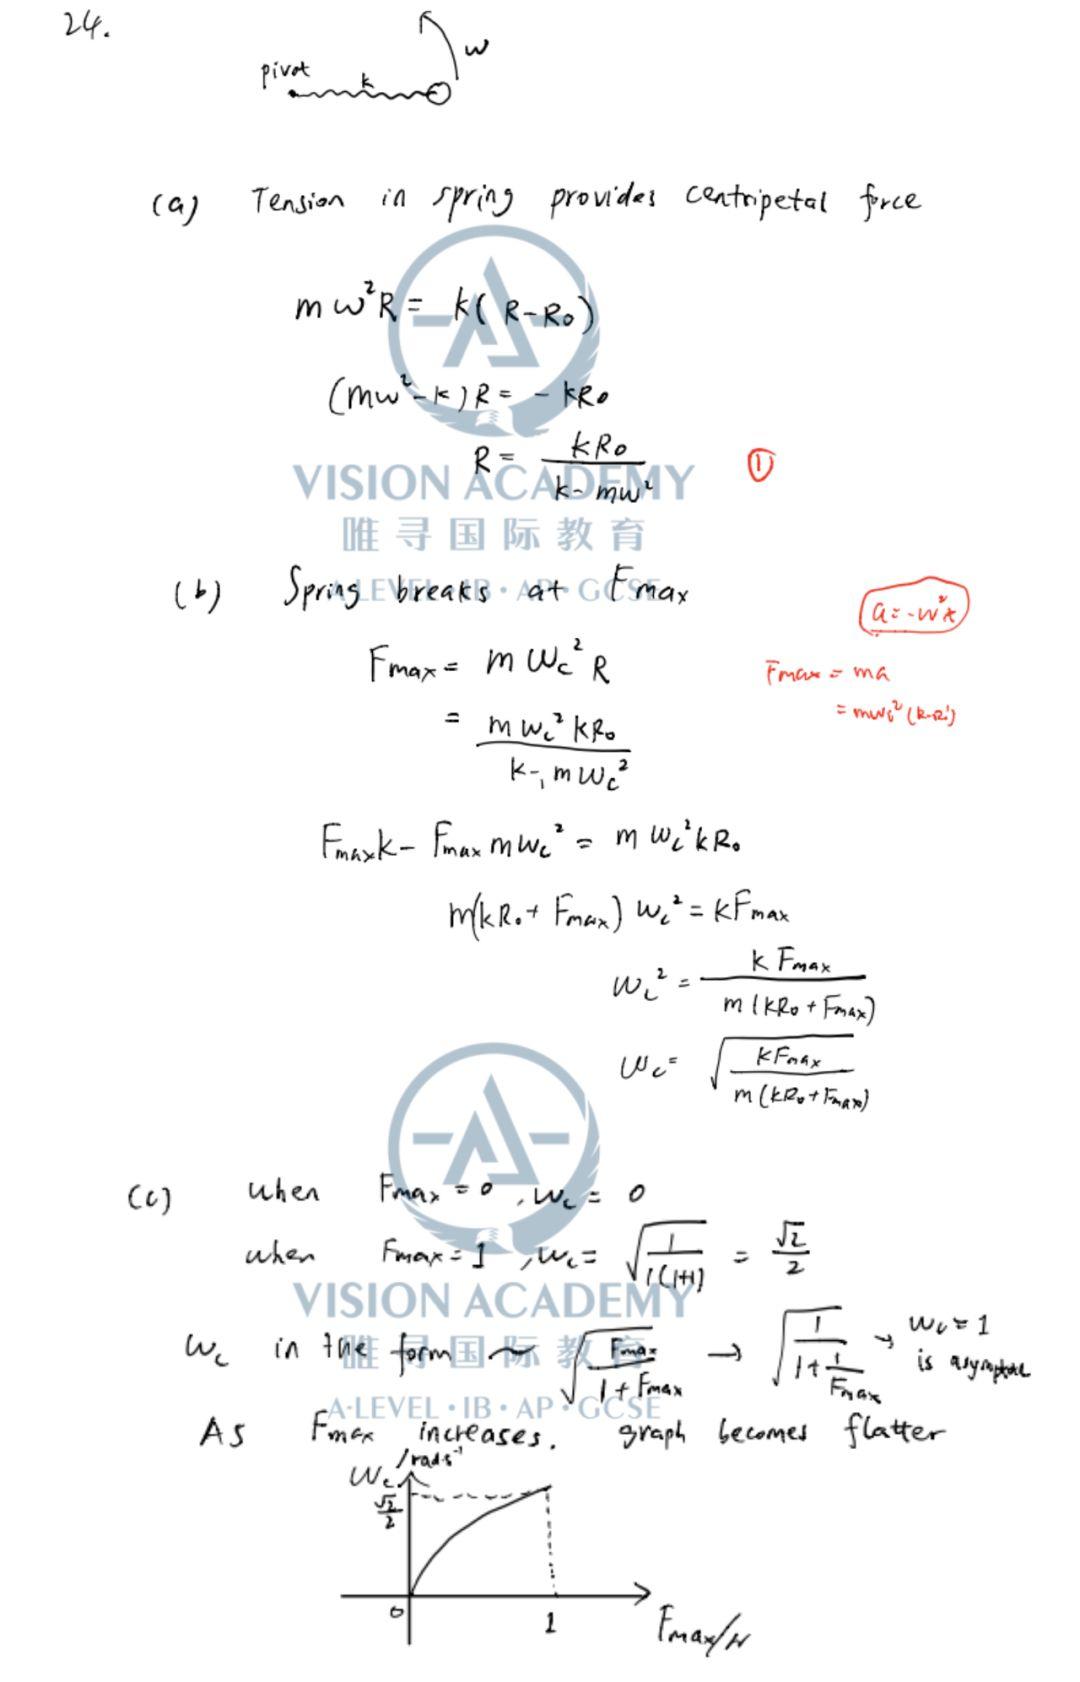 24.
pivot k ω
(a) Tension in spring provides centripetal force
mω²R = k(R-R₀)
(mω²-k)R = - kR₀
R = kR₀ / (k-mω²) ①
VISION ACADEMY
唯寻国际教育
A-LEVEL · IB · AP · GCSE
(b) Spring breaks at Fmax
a = -ω²x
Fmax = mωc²R
Fmax = ma
= mωc²kR₀ / (k-mωc²)
Fmaxk - Fmax mωc² = mωc²kR₀
m(kR₀ + Fmax) ωc² = kFmax
ωc² = kFmax / m(kR₀ + Fmax)
ωc = √(kFmax / m(kR₀ + Fmax))
(c) when Fmax = 0, ωc = 0
when Fmax = 1, ωc = √(1 / 1(1+1)) = √2/2
VISION ACADEMY
唯寻国际教育
ωc in the form ~ √(Fmax / 1 + Fmax) → √(1 / 1 + 1/Fmax) → ωc = 1
is asymptote
A-LEVEL · IB · AP · GCSE
As Fmax increases. graph becomes flatter
ωc /rads⁻¹
√2/2
0 1 Fmax/N